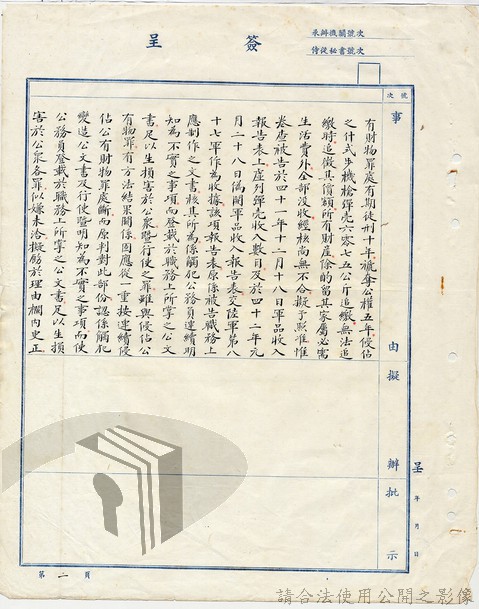 來辦機關號次
侍從秘書號次
簽
呈
號次
事
由擬
辦批
示
呈
年
月
日
有財物罪處有期徒刑十年褫奪公權五年侵佔
之什式步機槍彈壳六零七五公斤追繳無法追
繳時追徵其價額所有財產除酌留其家屬必需
生活費外全部沒收經核尚無不合擬予照准惟
卷查被告於四十一年十二月十八日軍品收入
報告表上虛列彈壳收入數目及於四十二年元
月二十八日偽開軍品收入報告表交陸軍第八
十七軍作為收據該項報告表原係被告職務上
應制作之文書核其所為係觸犯公務員連續明
知為不實之事項而登載於職務上所掌之公文
書足以生損害於公眾暨行使之罪雖與侵佔公
有財物罪有方法結果關係固應從一重按連續侵
佔公有財物罪處斷而原判對此部份認係觸犯
變造公文書及行使暨明知為不實之事項而使
公務員登載於職務上所掌之公文書足以生損
害於公眾各罪似嫌未洽擬飭於理由欄內更正
第二頁
請合法使用公開之影像